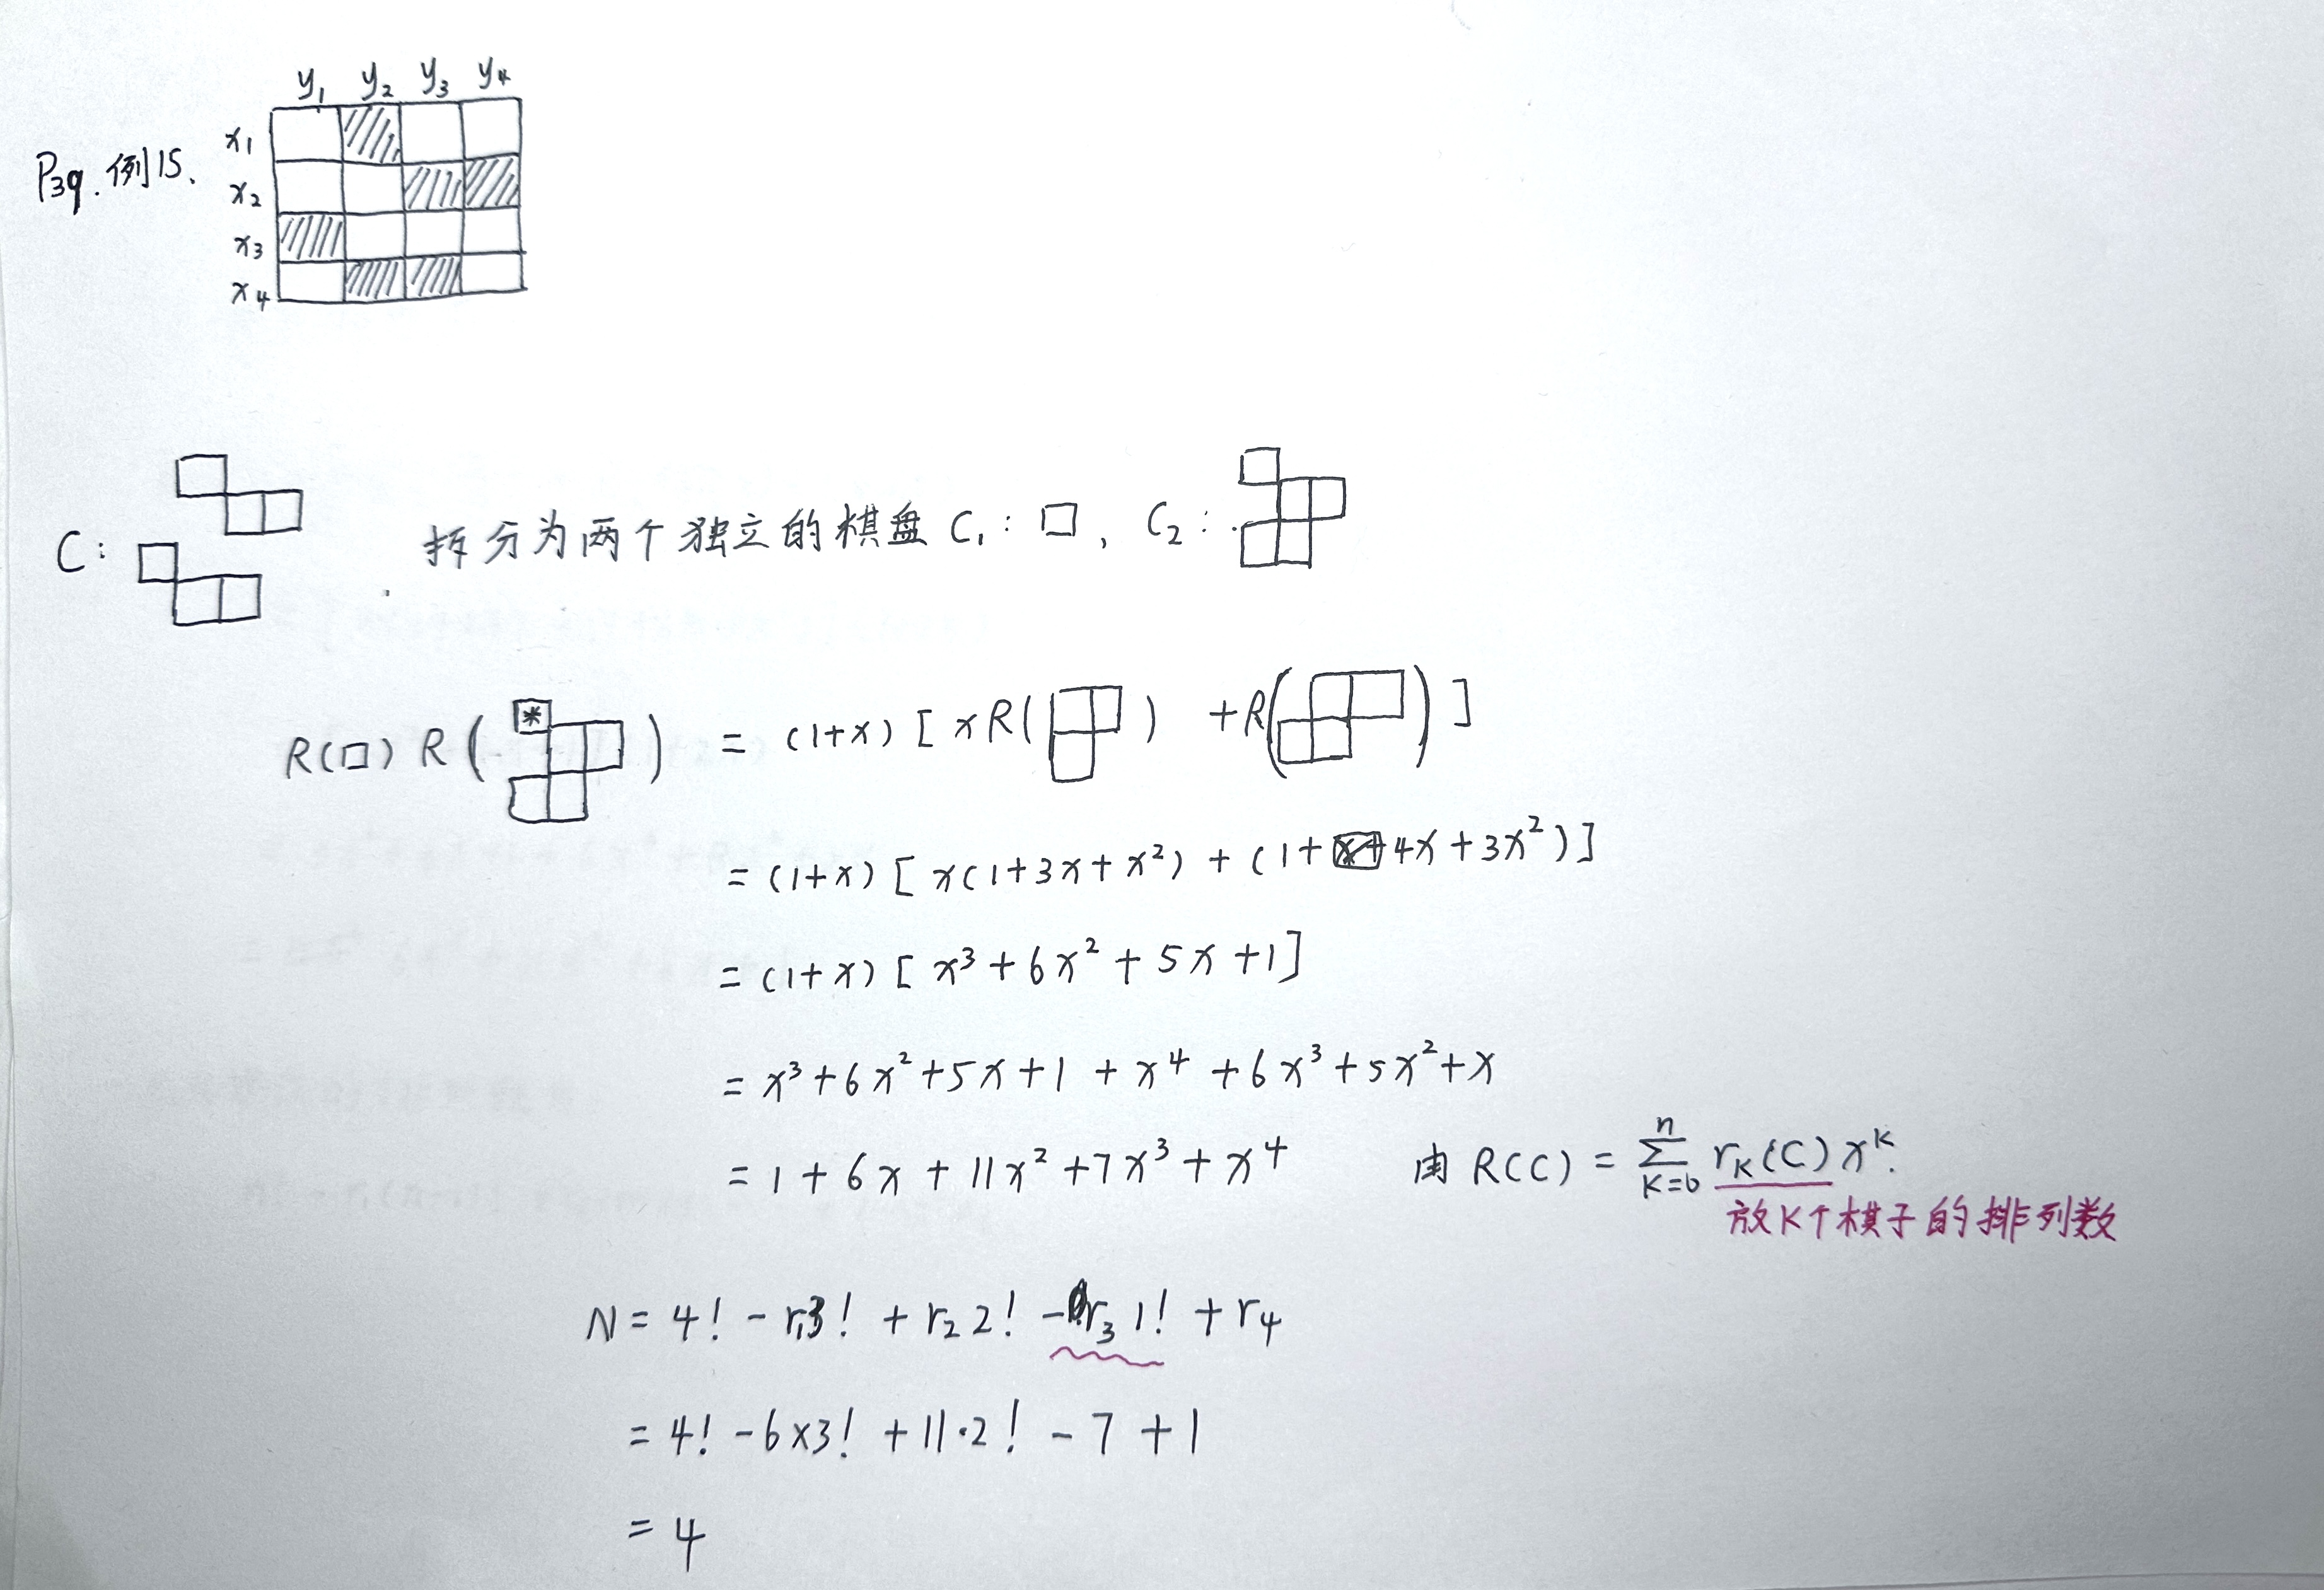 y₁ y₂ y₃ y₄
P₃₉. 例15、
x₁
x₂
x₃
x₄
C: 拆分为两个独立的棋盘 C₁: □, C₂:
R(□) R( * ) = (1+x) [ xR( ) + R( ) ]
= (1+x) [ x(1+3x+x²) + (1+4x+3x²) ]
= (1+x) [ x³+6x²+5x+1 ]
= x³+6x²+5x+1 + x⁴ +6x³+5x²+x
= 1+6x+11x²+7x³+x⁴ 由 R(C) = ∑ₖ₌₀ⁿ rₖ(C) xᵏ.
放K个棋子的排列数
N = 4! - r₁3! + r₂2! - r₃1! + r₄
= 4! - 6×3! + 11·2! - 7 + 1
= 4